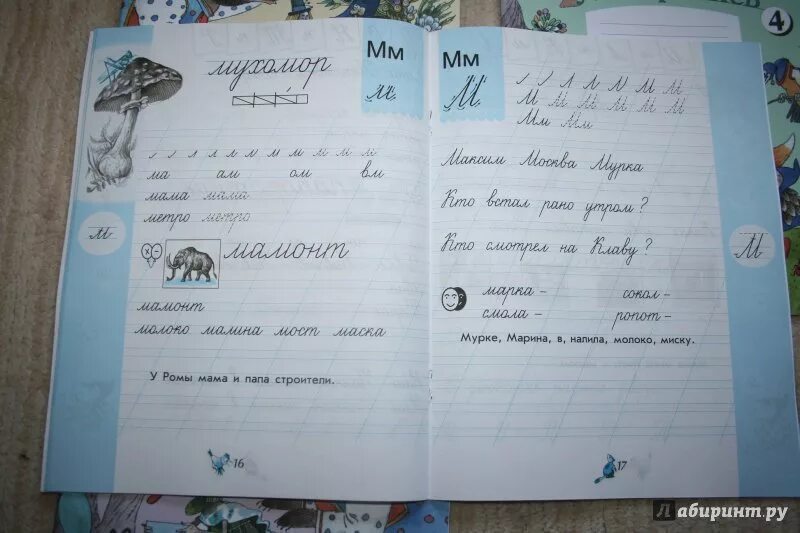 4
Мм
мухомор
м
м м м м м
ма ам ом вм
мама мама
метро метро
м
мамонт
мамонт
молоко малина мост маска
У Ромы мама и папа строители.
16
Мм
М
М М
М М М М М М
Мм Мм
Максим Москва Мурка
Кто встал рано утром?
Кто смотрел на Клаву?
М
марка – сокол –
смола – ропот –
Мурке, Марина, в, налила, молоко, миску.
17
Лабиринт.ру